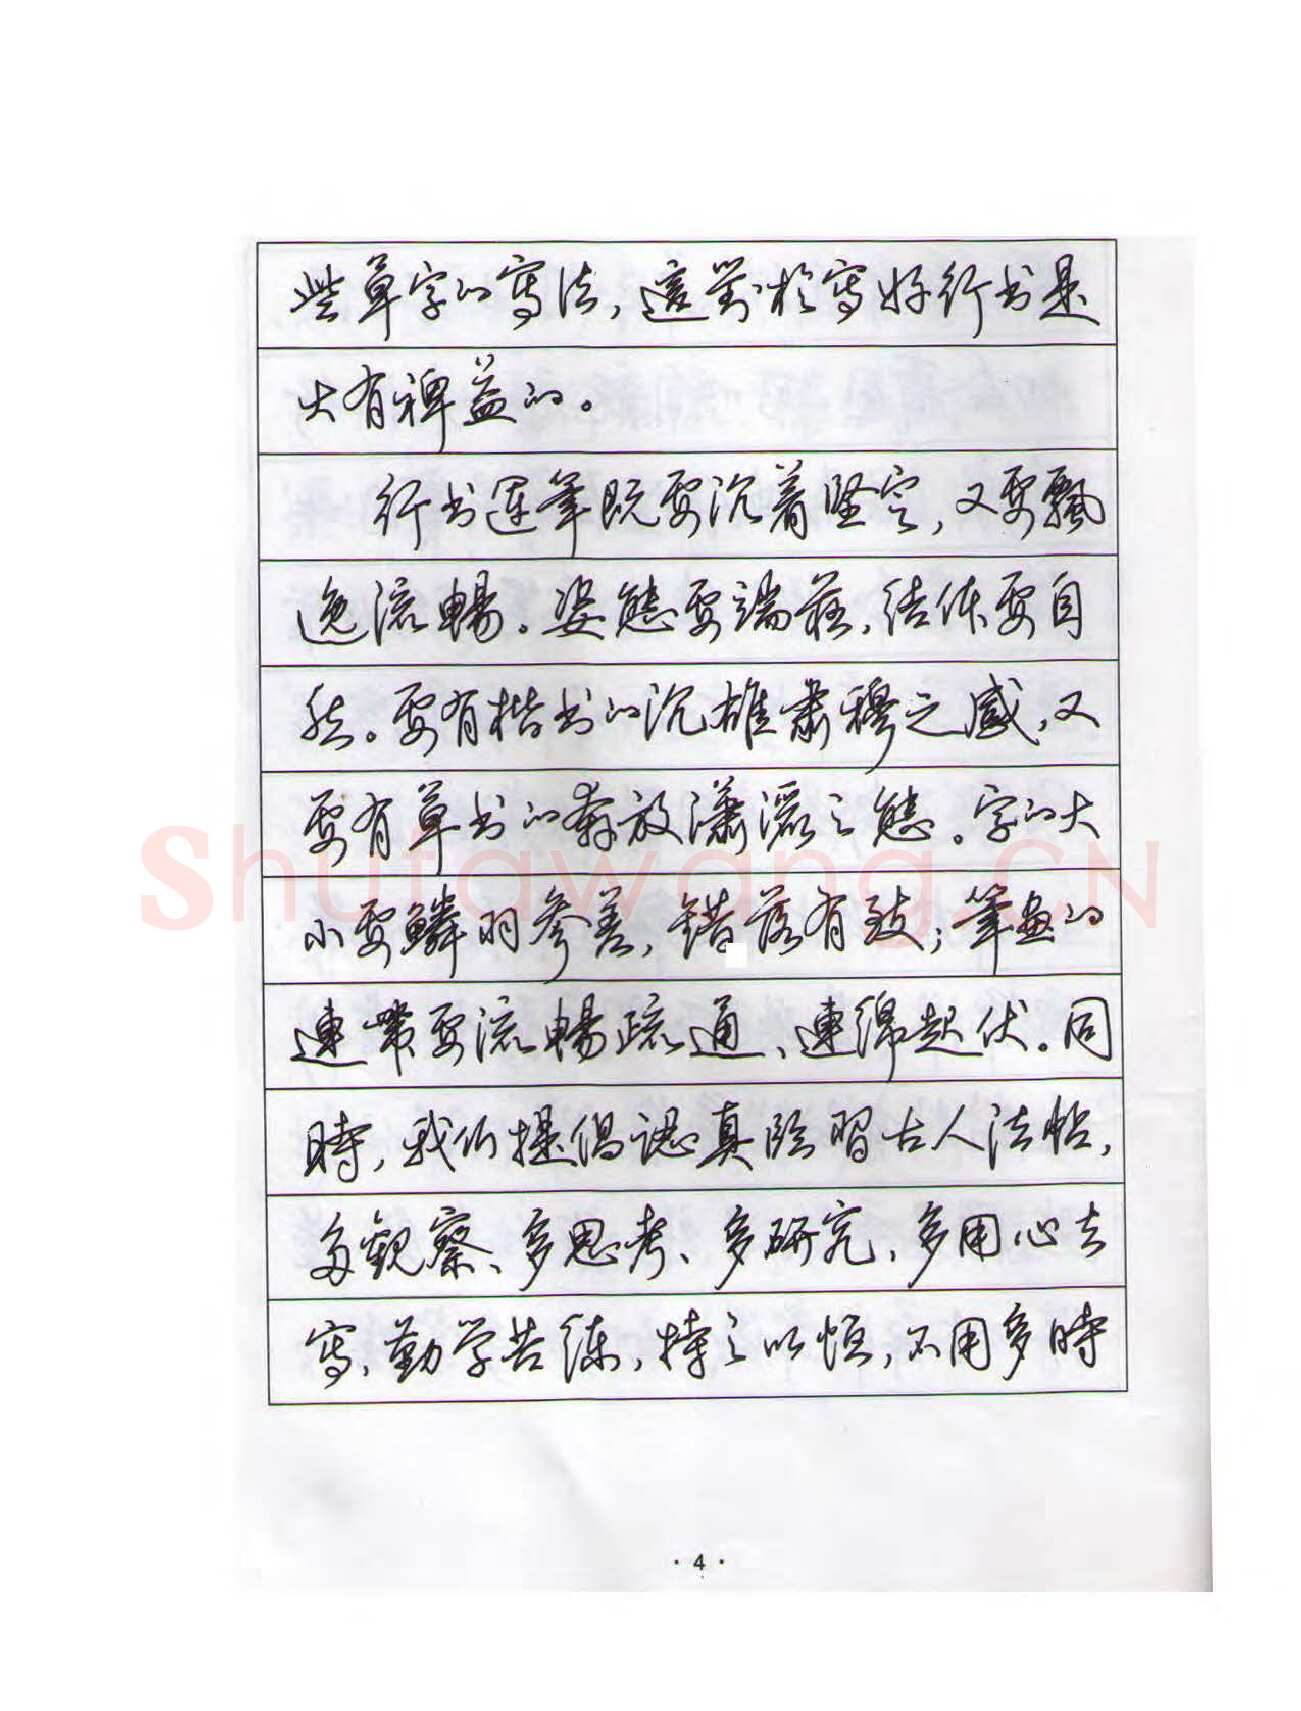 些草字的寫法，這對於寫好行书是
大有裨益的。
行书運筆既要沉着坚定，又要飄
逸流暢。姿態要端莊，结体要自
然。要有楷书的沉雄肅穆之感，又
要有草书的奔放瀟灑之態。字的大
小要鳞羽參差，錯落有致；筆画的
連帶要流暢疏通、連绵起伏。同
時，我们提倡認真临習古人法帖，
多觀察、多思考、多研究，多用心去
寫，勤学苦练，持之以恒，不用多時
Shufawang.CN
·4·